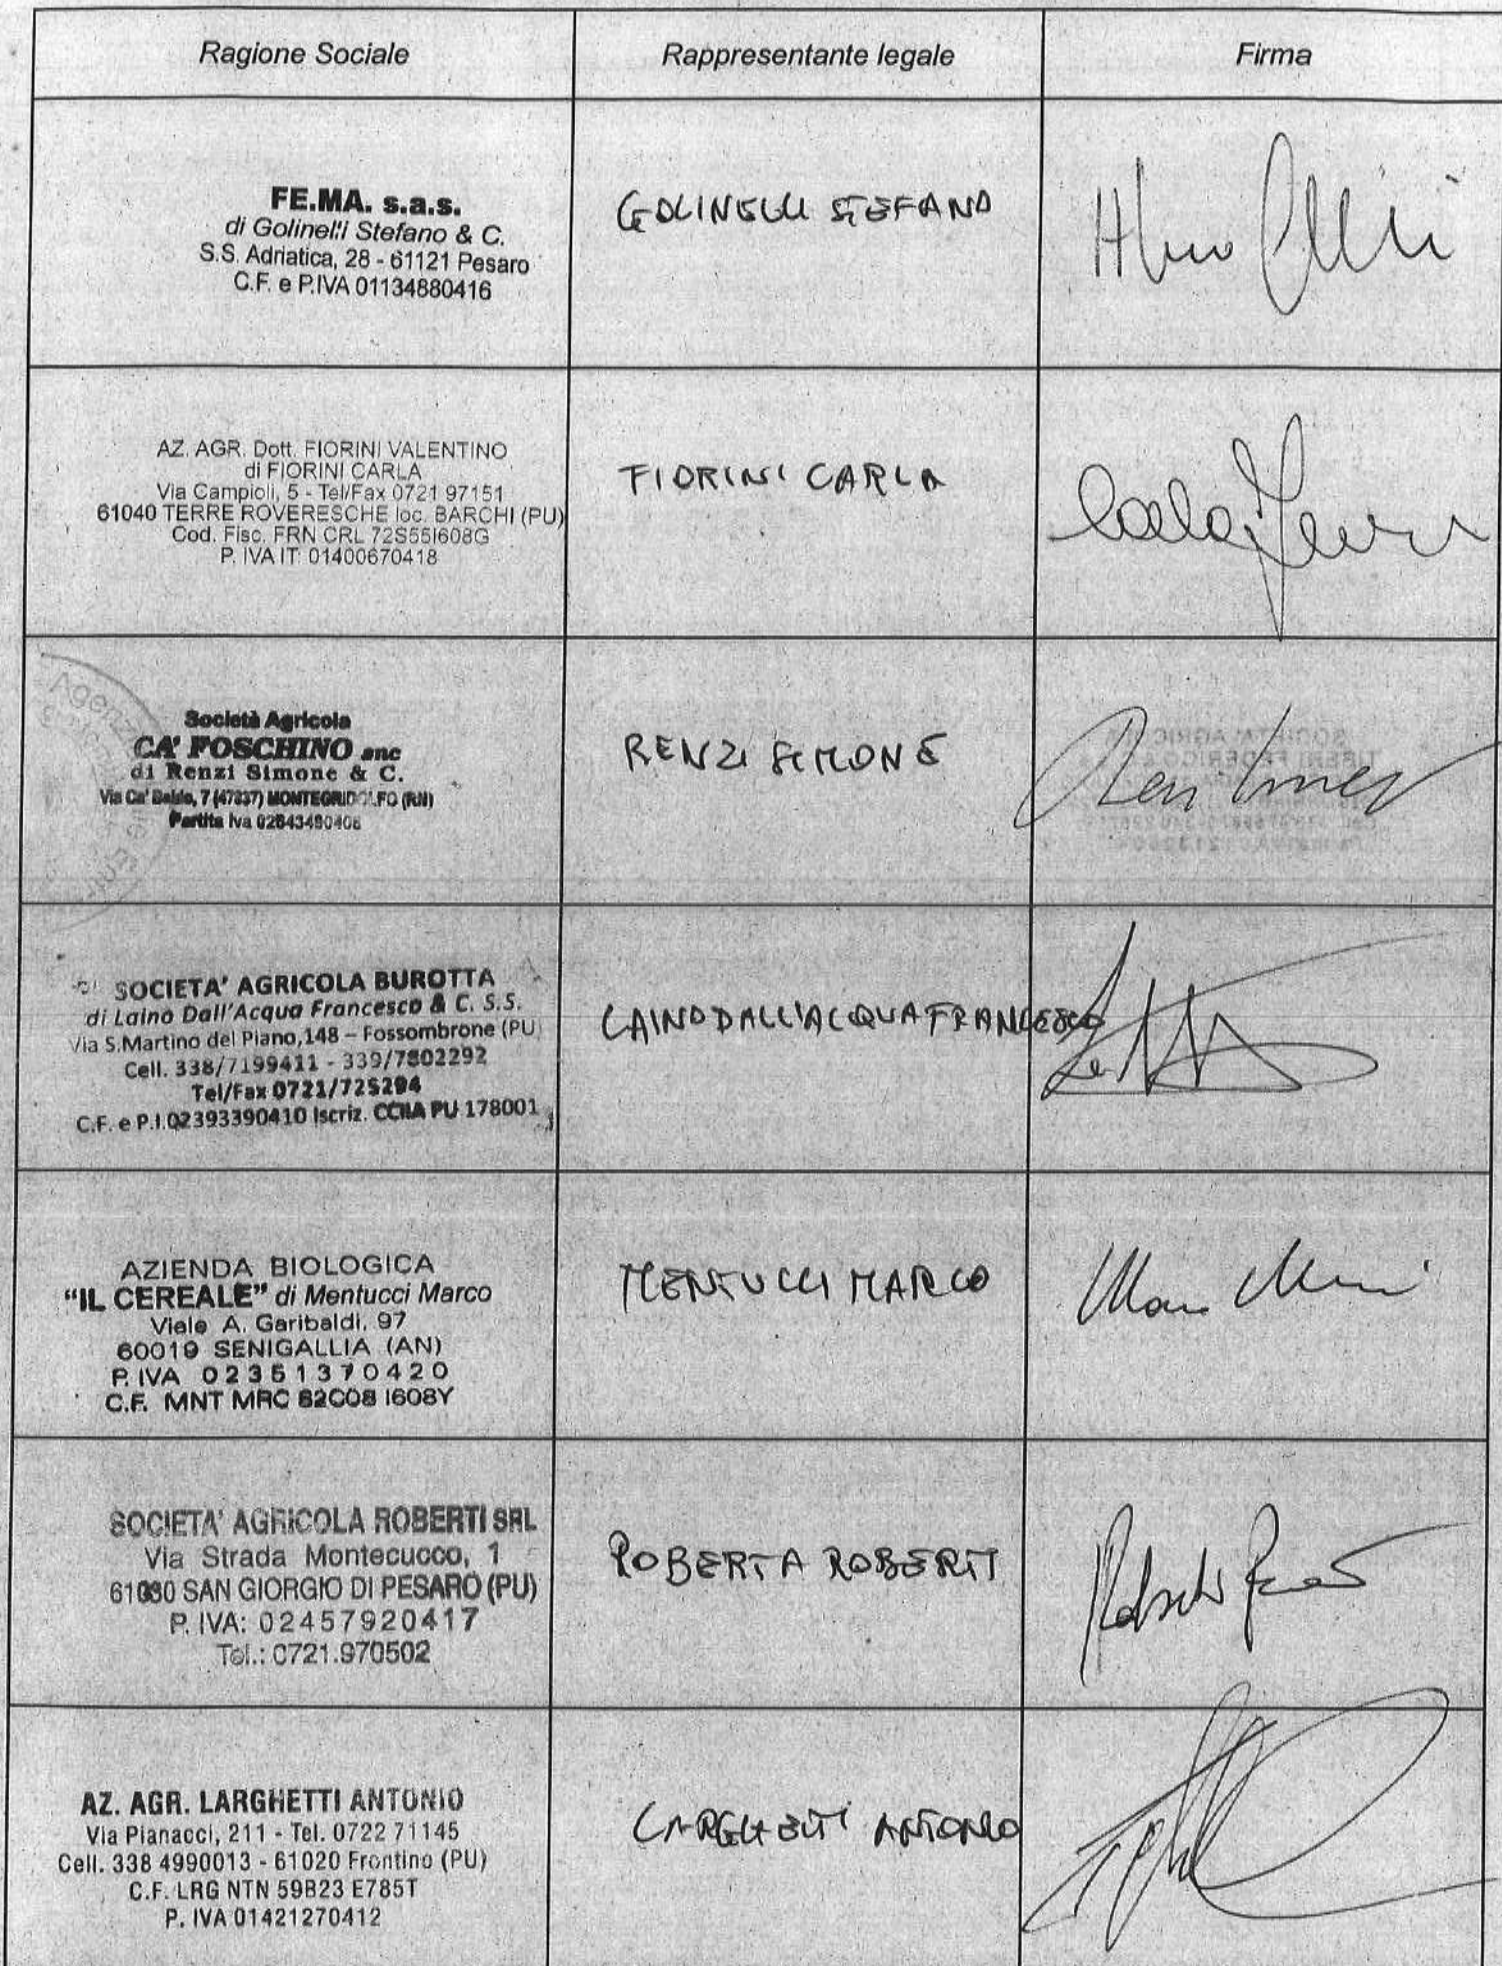 Ragione Sociale
Rappresentante legale
Firma
FE.MA. s.a.s.
di Golinelli Stefano & C.
S.S. Adriatica, 28 - 61121 Pesaro
C.F. e P.IVA 01134880416
GOLINELLI STEFANO
AZ. AGR. Dott. FIORINI VALENTINO
di FIORINI CARLA
Via Campioli, 5 - Tel/Fax 0721 97151
61040 TERRE ROVERESCHE loc. BARCHI (PU)
Cod. Fisc. FRN CRL 72S55I608G
P. IVA IT 01400670418
FIORINI CARLA
Carla
Società Agricola
CA' FOSCHINO snc
di Renzi Simone & C.
Via Ca' 7 (47837) MONTEGRIDOLFO (RN)
Partita Iva
RENZI SIMONE
SOCIETA' AGRICOLA BUROTTA
di Laino Dall'Acqua Francesco & C. S.S.
Via S.Martino del Piano,148 – Fossombrone (PU)
Cell. 338/7199411 - 339/7802292
Tel/Fax 0721/725294
C.F. e P.I.02393390410 Iscriz. CCIIA PU 178001
LAINO DALL'ACQUA FRANCESCO
AZIENDA BIOLOGICA
“IL CEREALE” di Mentucci Marco
Viale A. Garibaldi, 97
60019 SENIGALLIA (AN)
P. IVA 02351370420
C.F. MNT MRC 62C08 I608Y
MENTUCCI MARCO
SOCIETA' AGRICOLA ROBERTI SRL
Via Strada Montecucco, 1
61030 SAN GIORGIO DI PESARO (PU)
P. IVA: 02457920417
Tel.: 0721.970502
ROBERTA ROBERTI
AZ. AGR. LARGHETTI ANTONIO
Via Pianacci, 211 - Tel. 0722 71145
Cell. 338 4990013 - 61020 Frontino (PU)
C.F. LRG NTN 59B23 E785T
P. IVA 01421270412
LARGHETTI ANTONIO